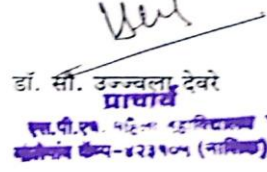 डॉ. सौ. उज्ज्वला देवरे
प्राचार्य
एस.पी.एच. महिला महाविद्यालय
मालेगांव कॅम्प-४२३१०५ (नाशिक)